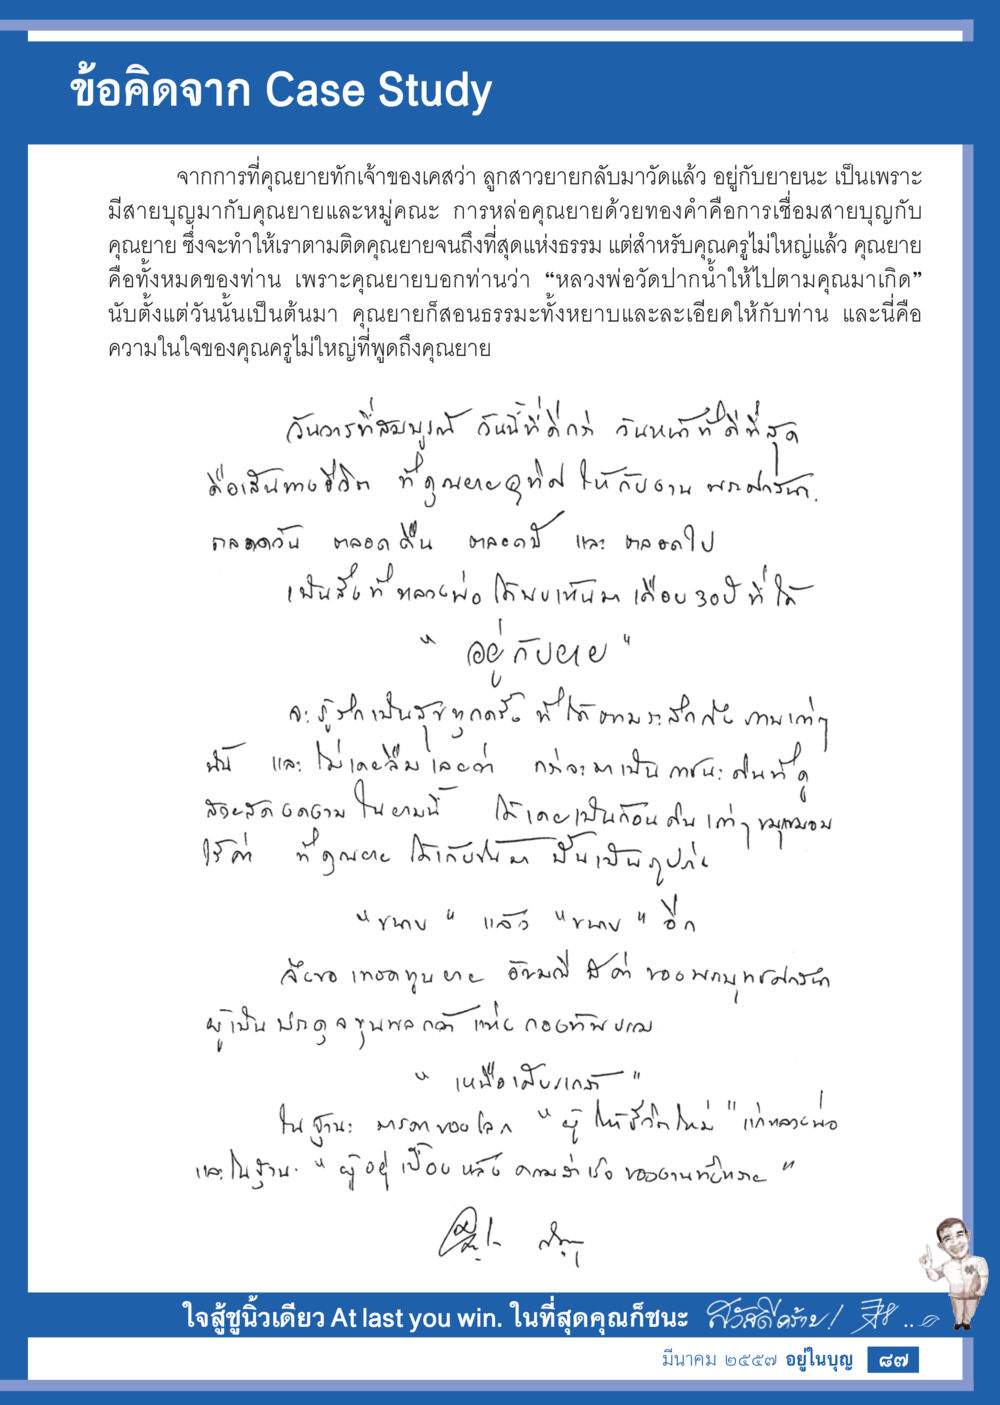 ข้อคิดจาก Case Study
จากการที่คุณยายทักเจ้าของเคสว่า ลูกสาวยายกลับมาวัดแล้ว อยู่กับยายนะ เป็นเพราะ
มีสายบุญมากับคุณยายและหมู่คณะ การหล่อคุณยายด้วยทองคำคือการเชื่อมสายบุญกับ
คุณยาย ซึ่งจะทำให้เราตามติดคุณยายจนถึงที่สุดแห่งธรรม แต่สำหรับคุณครูไม่ใหญ่แล้ว คุณยาย
คือทั้งหมดของท่าน เพราะคุณยายบอกท่านว่า “หลวงพ่อวัดปากน้ำให้ไปตามคุณมาเกิด”
นับตั้งแต่วันนั้นเป็นต้นมา คุณยายก็สอนธรรมะทั้งหยาบและละเอียดให้กับท่าน และนี่คือ
ความในใจของคุณครูไม่ใหญ่ที่พูดถึงคุณยาย
วันวารที่สมบูรณ์ วันนี้ที่ดีกว่า วันหน้าที่ดีที่สุด
คือเส้นทางชีวิต ที่คุณยายอุทิศ ให้กับงาน พระศาสนา
ตลอดวัน ตลอดคืน ตลอดปี และ ตลอดไป
เป็นสิ่งที่ หลวงพ่อ ได้พบเห็นมา เกือบ 30 ปี ที่ได้
“ อยู่กับยาย ”
จะ รู้สึก เป็นสุขทุกครั้ง ที่ได้ ระลึกถึง ภาพเก่าๆ
นั้น และ ไม่เคยลืม เลยว่า กว่าจะมาเป็น ภาชนะ ดินที่ดู
สวยสดงดงาม ในยามนี้ ได้เคยเป็นก้อนดิน เก่าๆ ขมุกขมอม
ไร้ค่า ที่คุณยาย ได้เก็บขึ้นมา ปั้นเป็นรูปร่าง
“ขนาบ” แล้ว “ขนาบ” อีก
จึงขอ เทอดทูน ยาย อัญมณี มีค่า ของพระพุทธศาสนา
ผู้เป็น ประดุจ ขุนพลกล้า แห่ง กองทัพธรรม
“ เหนือเศียรเกล้า ”
ในฐานะ มารดาของโลก “ ผู้ ให้ชีวิตใหม่ ” แก่หลวงพ่อ
และในฐานะ “ ผู้อยู่เบื้องหลัง ความสำเร็จ ของงานทั้งหลาย ”
ใจสู้ชูนิ้วเดียว At last you win. ในที่สุดคุณก็ชนะ สวัสดีคร้าบ!
มีนาคม ๒๕๕๗ อยู่ในบุญ ๘๗